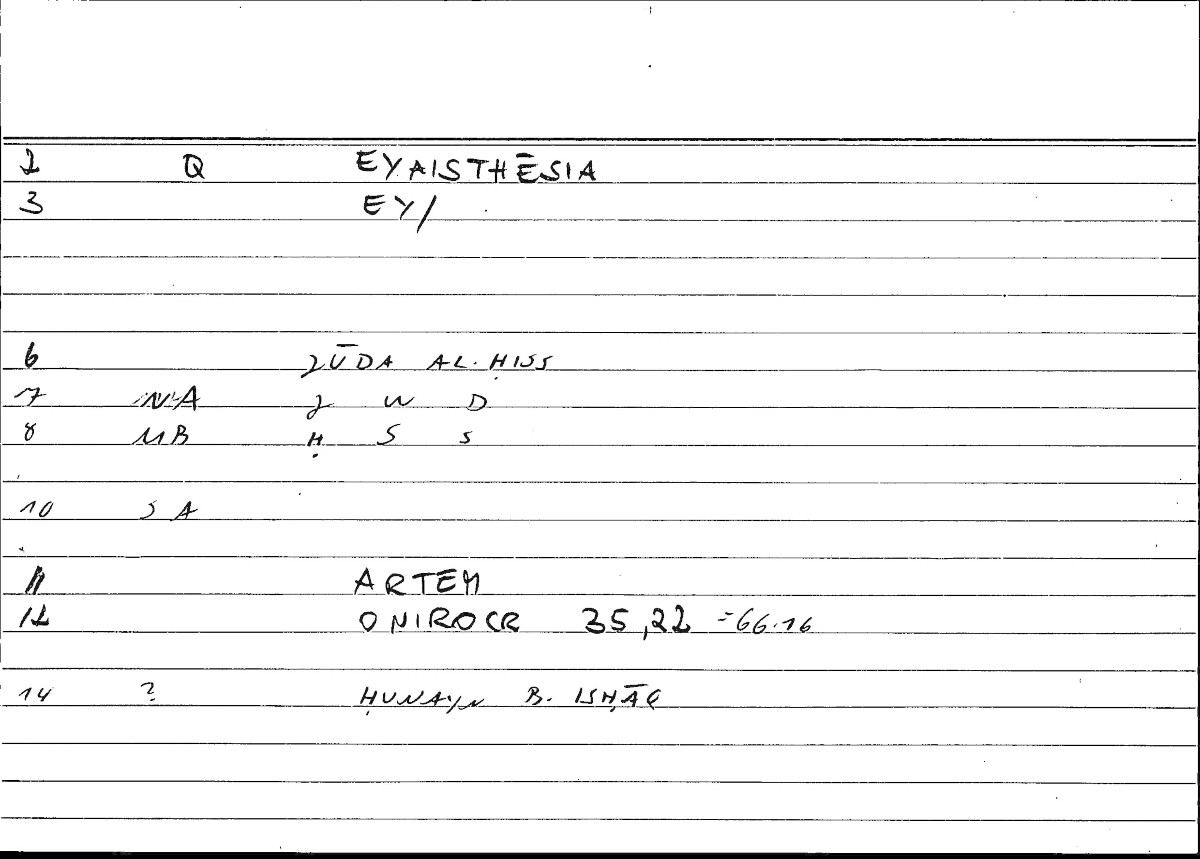 2 Q EYAISTHĒSIA
3 EY/
6 JŪDA AL-ḤISS
7 NA J W D
8 MB Ḥ S S
10 SA
11 ARTEM
12 ONIROCR 35,22 =66.16
14 ? ḤUNAYN B. ISḤĀQ